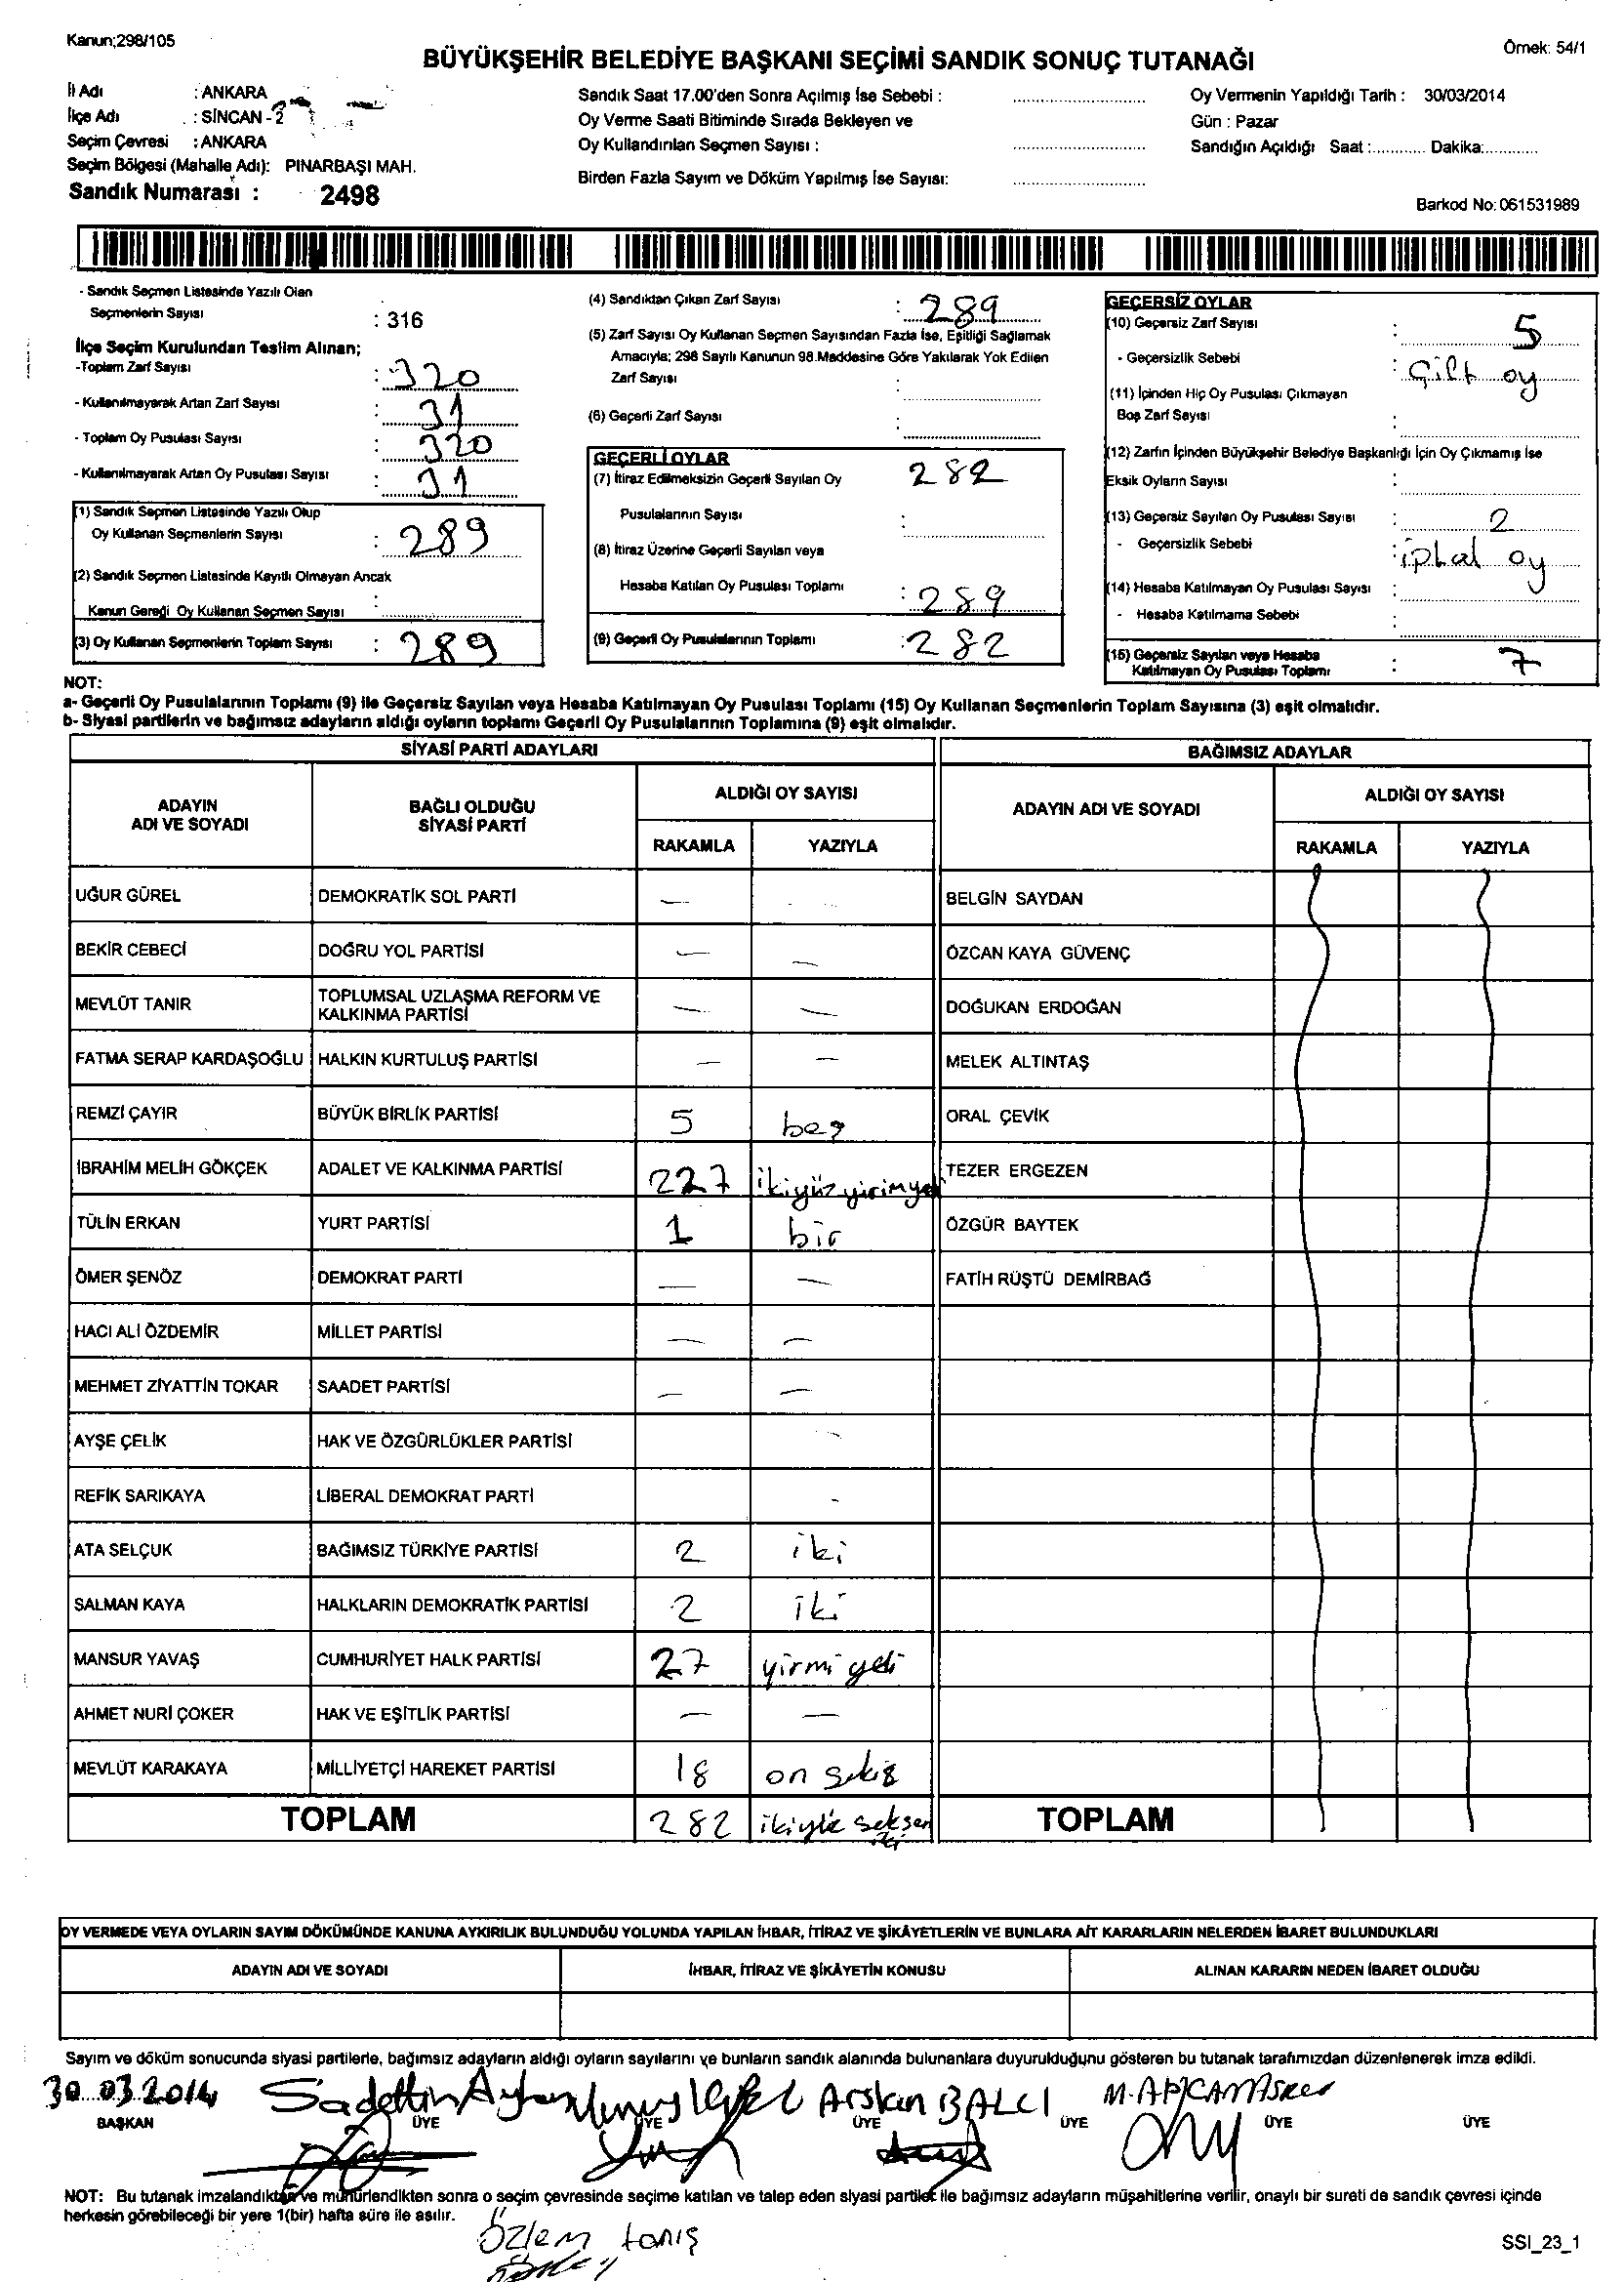 Kanun;298/105
Örnek: 54/1
BÜYÜKŞEHİR BELEDİYE BAŞKANI SEÇİMİ SANDIK SONUÇ TUTANAĞI
İl Adı : ANKARA
İlçe Adı : SİNCAN - 2
Seçim Çevresi : ANKARA
Seçim Bölgesi (Mahalle Adı): PINARBAŞI MAH.
Sandık Numarası : 2498
Sandık Saat 17.00'den Sonra Açılmış İse Sebebi :
Oy Verme Saati Bitiminde Sırada Bekleyen ve
Oy Kullandırılan Seçmen Sayısı :
Birden Fazla Sayım ve Döküm Yapılmış İse Sayısı:
Oy Vermenin Yapıldığı Tarih : 30/03/2014
Gün : Pazar
Sandığın Açıldığı Saat :............ Dakika:............
Barkod No: 061531989
- Sandık Seçmen Listesinde Yazılı Olan
Seçmenlerin Sayısı : 316
İlçe Seçim Kurulundan Teslim Alınan;
-Toplam Zarf Sayısı : 320
- Kullanılmayarak Artan Zarf Sayısı : 31
- Toplam Oy Pusulası Sayısı : 320
- Kullanılmayarak Artan Oy Pusulası Sayısı : 31
(1) Sandık Seçmen Listesinde Yazılı Olup
Oy Kullanan Seçmenlerin Sayısı : 289
(2) Sandık Seçmen Listesinde Kayıtlı Olmayan Ancak
Kanun Gereği Oy Kullanan Seçmen Sayısı :
(3) Oy Kullanan Seçmenlerin Toplam Sayısı : 289
(4) Sandıktan Çıkan Zarf Sayısı : 289
(5) Zarf Sayısı Oy Kullanan Seçmen Sayısından Fazla İse, Eşitliği Sağlamak
Amacıyla; 298 Sayılı Kanunun 98.Maddesine Göre Yakılarak Yok Edilen
Zarf Sayısı :
(6) Geçerli Zarf Sayısı :
GEÇERLİ OYLAR
(7) İtiraz Edilmeksizin Geçerli Sayılan Oy 282
Pusulalarının Sayısı :
(8) İtiraz Üzerine Geçerli Sayılan veya
Hesaba Katılan Oy Pusulası Toplamı : 289
(9) Geçerli Oy Pusulalarının Toplamı : 282
GEÇERSİZ OYLAR
(10) Geçersiz Zarf Sayısı : 5
- Geçersizlik Sebebi : Çift oy
(11) İçinden Hiç Oy Pusulası Çıkmayan
Boş Zarf Sayısı :
(12) Zarfın İçinden Büyükşehir Belediye Başkanlığı İçin Oy Çıkmamış İse
Eksik Oyların Sayısı :
(13) Geçersiz Sayılan Oy Pusulası Sayısı : 2
- Geçersizlik Sebebi : iptal oy
(14) Hesaba Katılmayan Oy Pusulası Sayısı :
- Hesaba Katılmama Sebebi :
(15) Geçersiz Sayılan veya Hesaba
Katılmayan Oy Pusulası Toplamı : 7
NOT:
a- Geçerli Oy Pusulalarının Toplamı (9) ile Geçersiz Sayılan veya Hesaba Katılmayan Oy Pusulası Toplamı (15) Oy Kullanan Seçmenlerin Toplam Sayısına (3) eşit olmalıdır.
b- Siyasi partilerin ve bağımsız adayların aldığı oyların toplamı Geçerli Oy Pusulalarının Toplamına (9) eşit olmalıdır.
SİYASİ PARTİ ADAYLARI
BAĞIMSIZ ADAYLAR
ADAYIN ADI VE SOYADI
BAĞLI OLDUĞU SİYASİ PARTİ
ALDIĞI OY SAYISI
RAKAMLA YAZIYLA
ADAYIN ADI VE SOYADI
ALDIĞI OY SAYISI
RAKAMLA YAZIYLA
UĞUR GÜREL DEMOKRATİK SOL PARTİ — - BELGİN SAYDAN
BEKİR CEBECİ DOĞRU YOL PARTİSİ — — ÖZCAN KAYA GÜVENÇ
MEVLÜT TANIR TOPLUMSAL UZLAŞMA REFORM VE KALKINMA PARTİSİ — — DOĞUKAN ERDOĞAN
FATMA SERAP KARDAŞOĞLU HALKIN KURTULUŞ PARTİSİ — — MELEK ALTINTAŞ
REMZİ ÇAYIR BÜYÜK BİRLİK PARTİSİ 5 beş ORAL ÇEVİK
İBRAHİM MELİH GÖKÇEK ADALET VE KALKINMA PARTİSİ 227 ikiyüz yirimyedi TEZER ERGEZEN
TÜLİN ERKAN YURT PARTİSİ 1 bir ÖZGÜR BAYTEK
ÖMER ŞENÖZ DEMOKRAT PARTİ — — FATİH RÜŞTÜ DEMİRBAĞ
HACI ALİ ÖZDEMİR MİLLET PARTİSİ — —
MEHMET ZİYATTİN TOKAR SAADET PARTİSİ — —
AYŞE ÇELİK HAK VE ÖZGÜRLÜKLER PARTİSİ
REFİK SARIKAYA LİBERAL DEMOKRAT PARTİ -
ATA SELÇUK BAĞIMSIZ TÜRKİYE PARTİSİ 2 iki
SALMAN KAYA HALKLARIN DEMOKRATİK PARTİSİ 2 iki
MANSUR YAVAŞ CUMHURİYET HALK PARTİSİ 27 yirmi yedi
AHMET NURİ ÇOKER HAK VE EŞİTLİK PARTİSİ — —
MEVLÜT KARAKAYA MİLLİYETÇİ HAREKET PARTİSİ 18 on sekiz
TOPLAM 282 ikiyüz seksen iki TOPLAM
OY VERMEDE VEYA OYLARIN SAYIM DÖKÜMÜNDE KANUNA AYKIRILIK BULUNDUĞU YOLUNDA YAPILAN İHBAR, İTİRAZ VE ŞİKÂYETLERİN VE BUNLARA AİT KARARLARIN NELERDEN İBARET BULUNDUKLARI
ADAYIN ADI VE SOYADI İHBAR, İTİRAZ VE ŞİKÂYETİN KONUSU ALINAN KARARIN NEDEN İBARET OLDUĞU
Sayım ve döküm sonucunda siyasi partilerle, bağımsız adayların aldığı oyların sayılarını ve bunların sandık alanında bulunanlara duyurulduğunu gösteren bu tutanak tarafımızdan düzenlenerek imza edildi.
30.03.2014 Sadettin Ayhan Arslan BALCI
BAŞKAN ÜYE ÜYE ÜYE ÜYE ÜYE ÜYE
NOT: Bu tutanak imzalandıktan ve mühürlendikten sonra o seçim çevresinde seçime katılan ve talep eden siyasi partiler ile bağımsız adayların müşahitlerine verilir, onaylı bir sureti de sandık çevresi içinde
herkesin görebileceği bir yere 1(bir) hafta süre ile asılır.
Özlem tanış
SSI_23_1